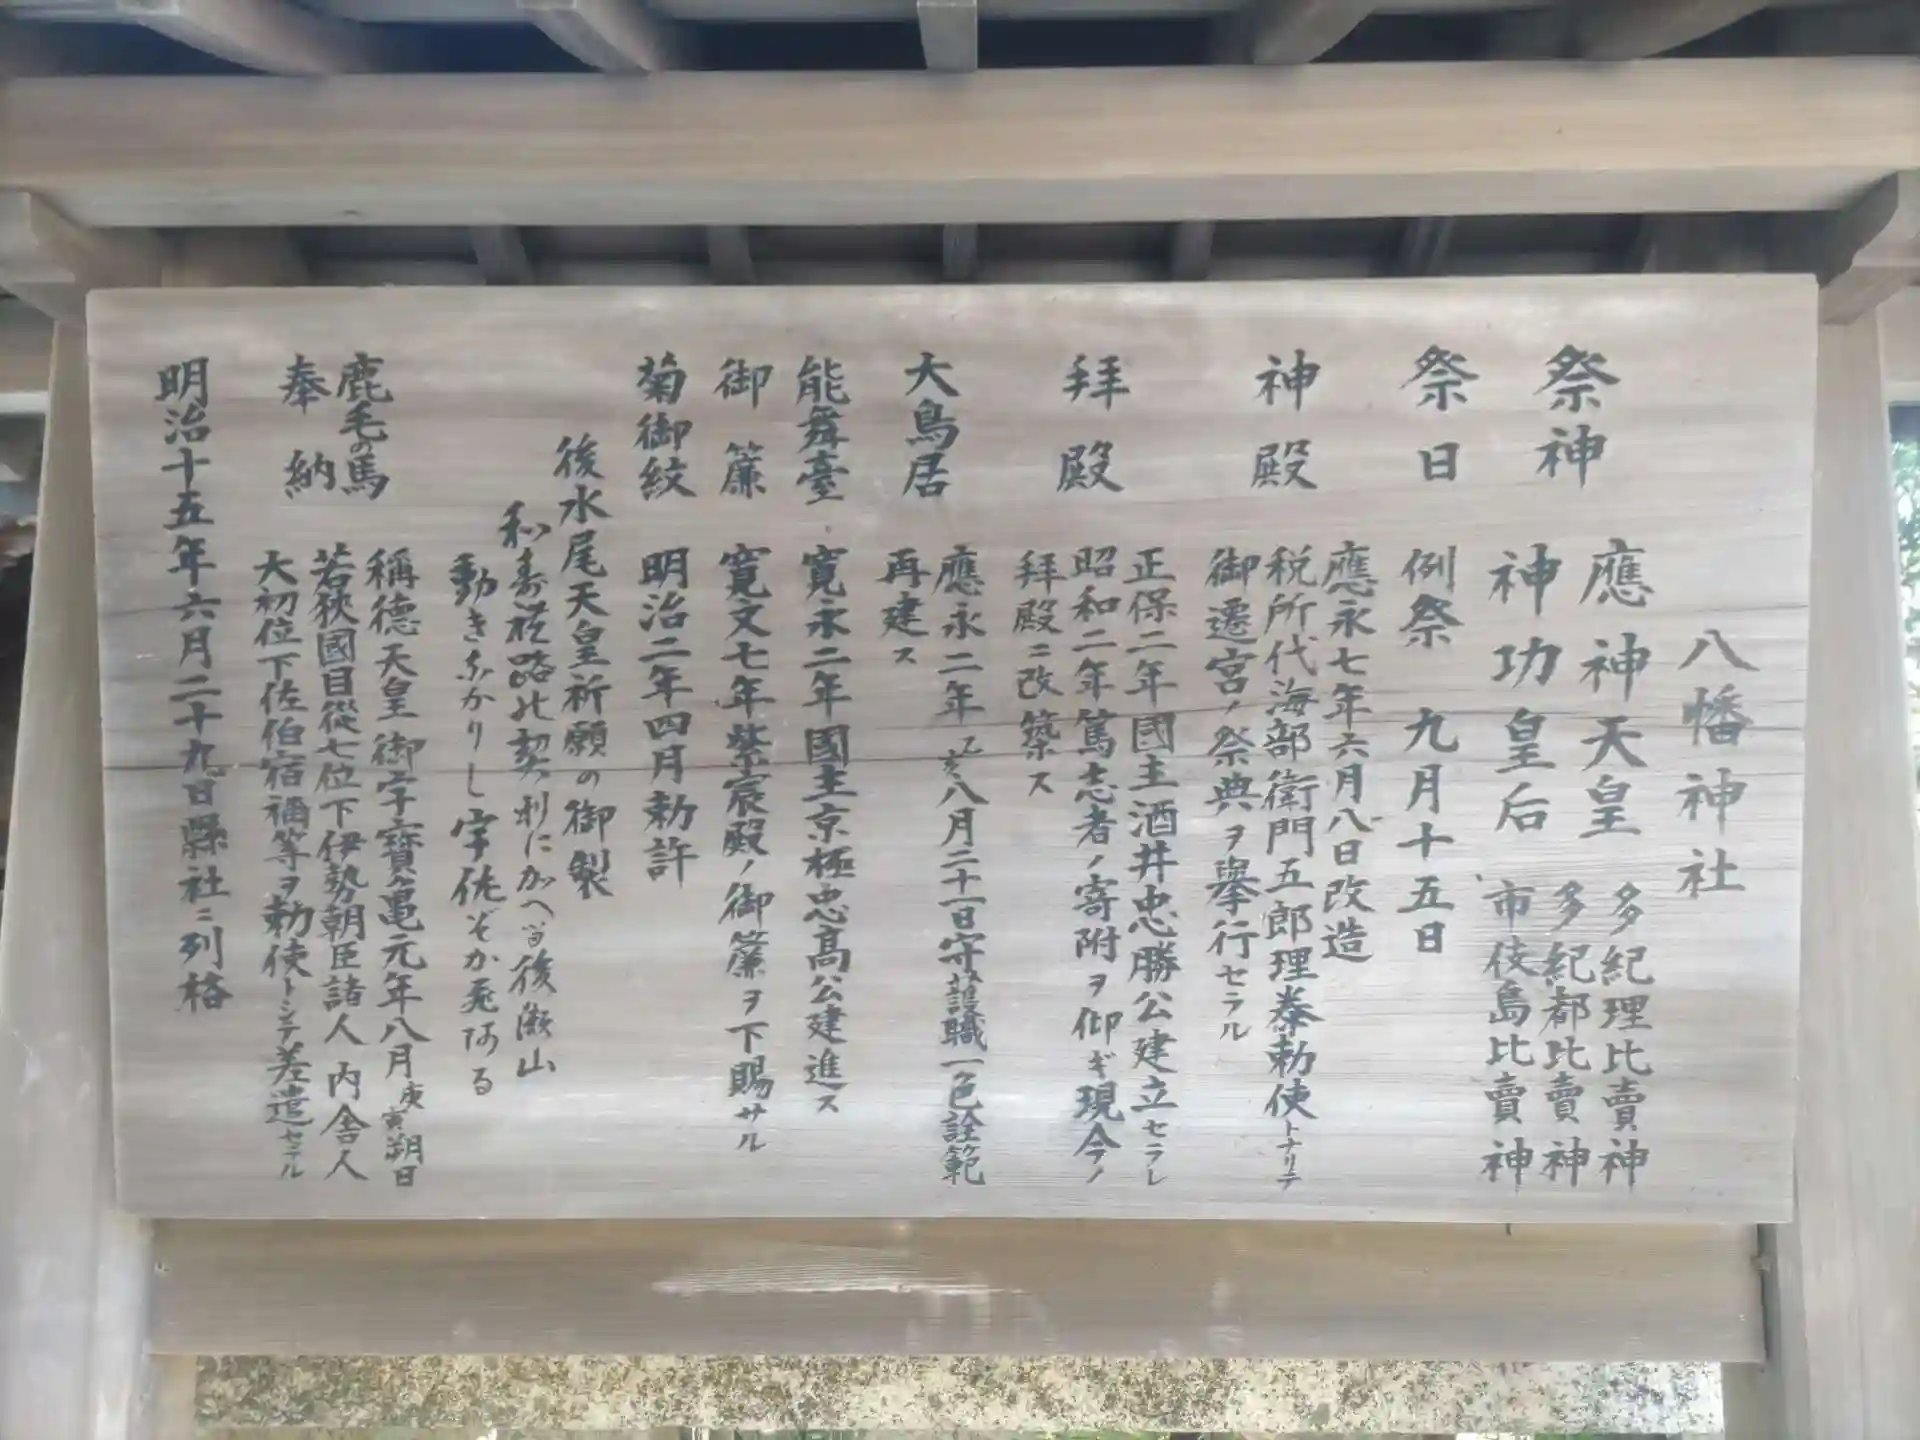 八幡神社
祭神 應神天皇 多紀理比賣神
多紀都比賣神
神功皇后 市伎島比賣神
祭日 例祭 九月十五日
神殿 應永七年六月八日改造
税所代海部衛門五郎理泰勅使トナリテ
御遷宮ノ祭典ヲ擧行セラル
拜殿 正保二年國主酒井忠勝公建立セラレ
昭和二年篤志者ノ寄附ヲ仰ギ現今ノ
拜殿ニ改築ス
大鳥居 應永二年乙亥八月二十一日守護職一色詮範
再建ス
能舞臺 寛永二年國主京極忠高公建進ス
御簾 寛文七年紫宸殿ノ御簾ヲ下賜サル
菊御紋 明治二年四月勅許
後水尾天皇祈願の御製
和寿祢路比契利にかへる後瀬山
動きなかりし宇佐ぞか飛阿る
鹿毛の馬 稱德天皇御宇寶亀元年八月庚寅朔日
奉納 若狹國目從七位下伊勢朝臣諸人内舎人
大初位下佐伯宿禰等ヲ勅使トシテ差遣セラル
明治十五年六月二十九日縣社ニ列格